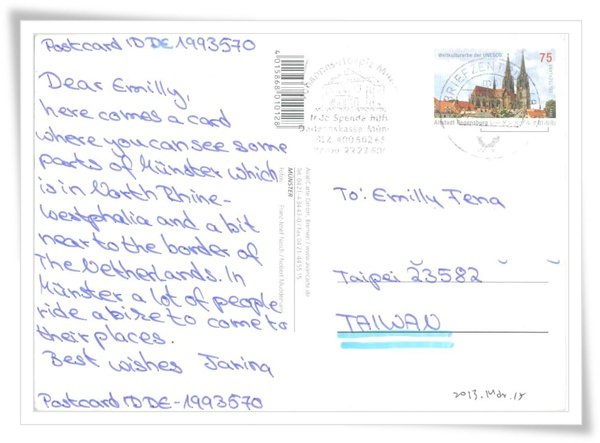 Postcard ID DE 1993570
Dear Emilly,
here comes a card
where you can see some
parts of Münster which
is in North Rhine-
Westphalia and a bit
near to the border of
The Netherlands. In
Münster a lot of people
ride a bike to come to
their places.
Best wishes Janina
Postcard ID DE-1993570
4015868010126
MÜNSTER
Weltkulturerbe der UNESCO
75
Altstadt Regensburg
BRIEFZENTRUM
Ihre Spende hilft
To: Emilly Feng
Taipei 23582
TAIWAN
2013. Mar. 18